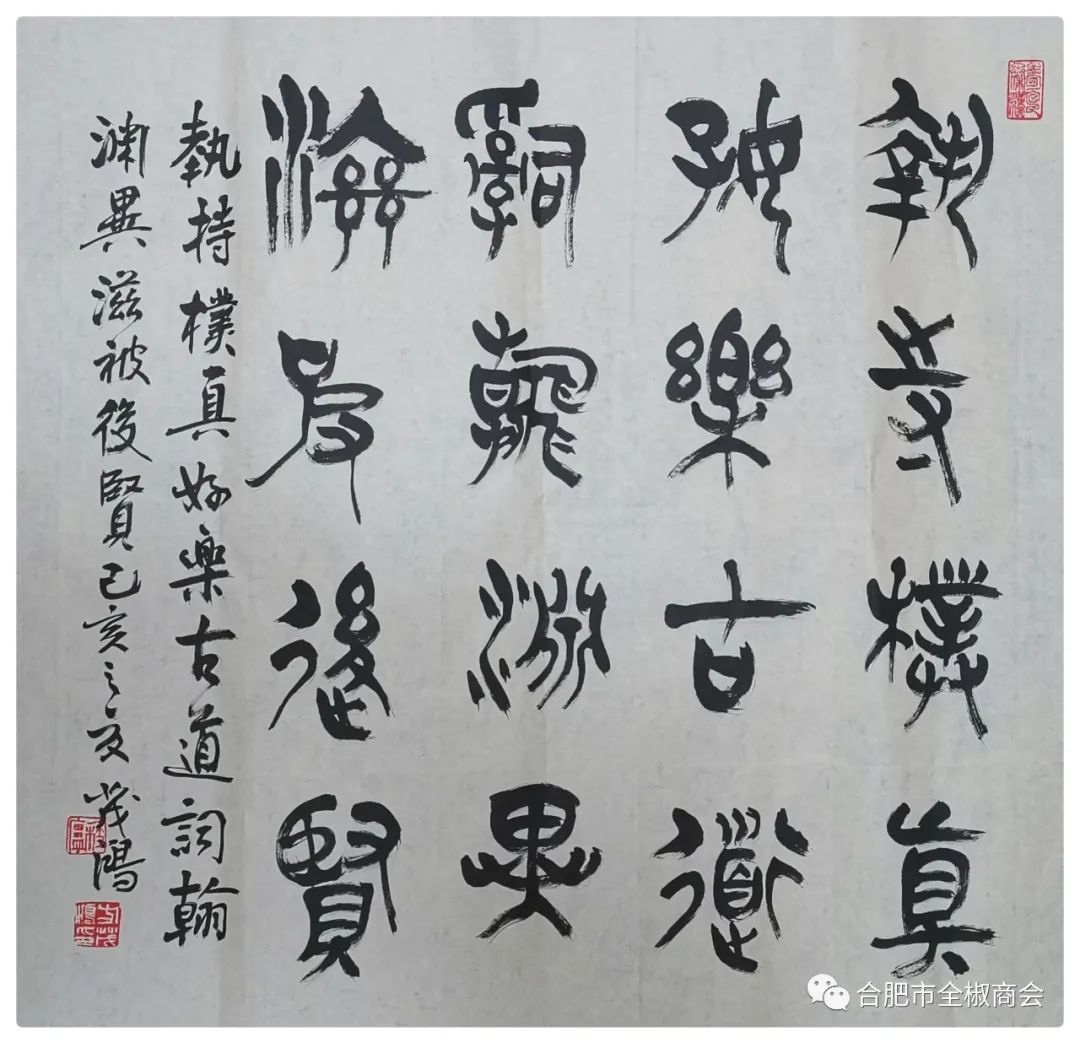 執寺樸真
好樂古道
詞翰淵異
滋皮後賢
執持樸真好樂古道詞翰
淵異滋被後賢己亥之夏茂鴻
合肥市全椒商会